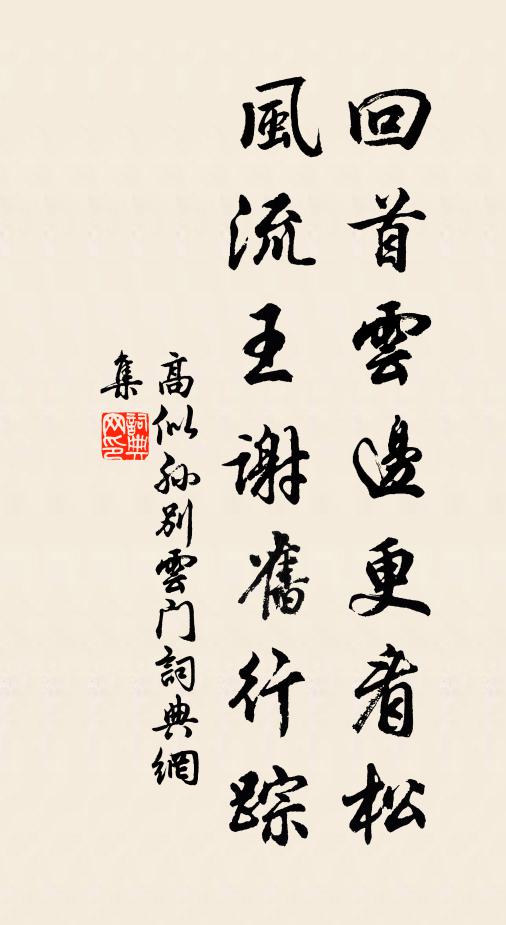 回首雲邊更看松
風流王謝舊行踪
高似孫別雲门詞典網
集
詞典
网印